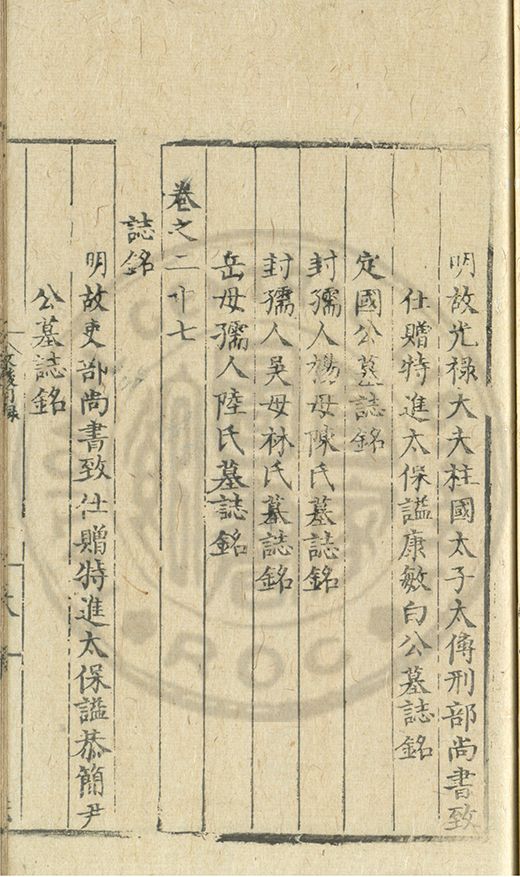 明故光祿大夫柱國太子太傅刑部尚書致
仕贈特進太保謚康敏白公墓誌銘
定國公墓誌銘
封孺人楊母陳氏墓誌銘
封孺人吳母林氏墓誌銘
岳母孺人陸氏墓誌銘
卷之二十七
誌銘
明故吏部尚書致仕贈特進太保謚恭簡尹
公墓誌銘